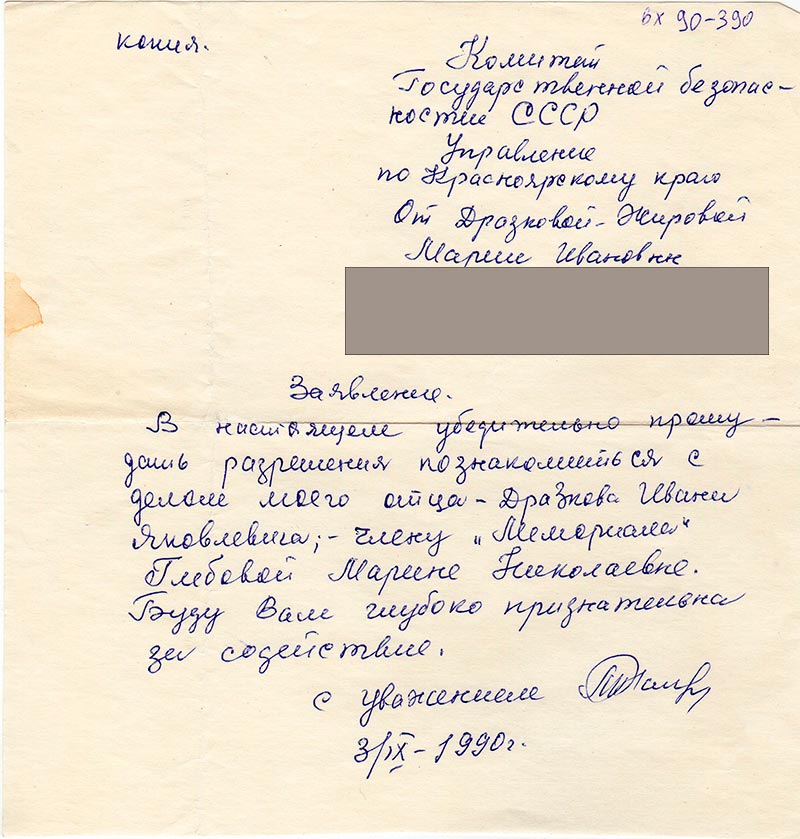 вх 90-390
копия.
Комитет
Государственной безопас-
ности СССР
Управление
по Красноярскому краю
От Дразковой-Жировой
Марии Ивановн
Заявление.
В настоящем убедительно прошу-
дать разрешения познакомиться с
делом моего отца - Дразкова Ивана
Яковлевича; - члену "Мемориала"
Глебовой Марине Николаевне.
Буду Вам глубоко признательна
за содействие.
С уважением
3/IX-1990г.